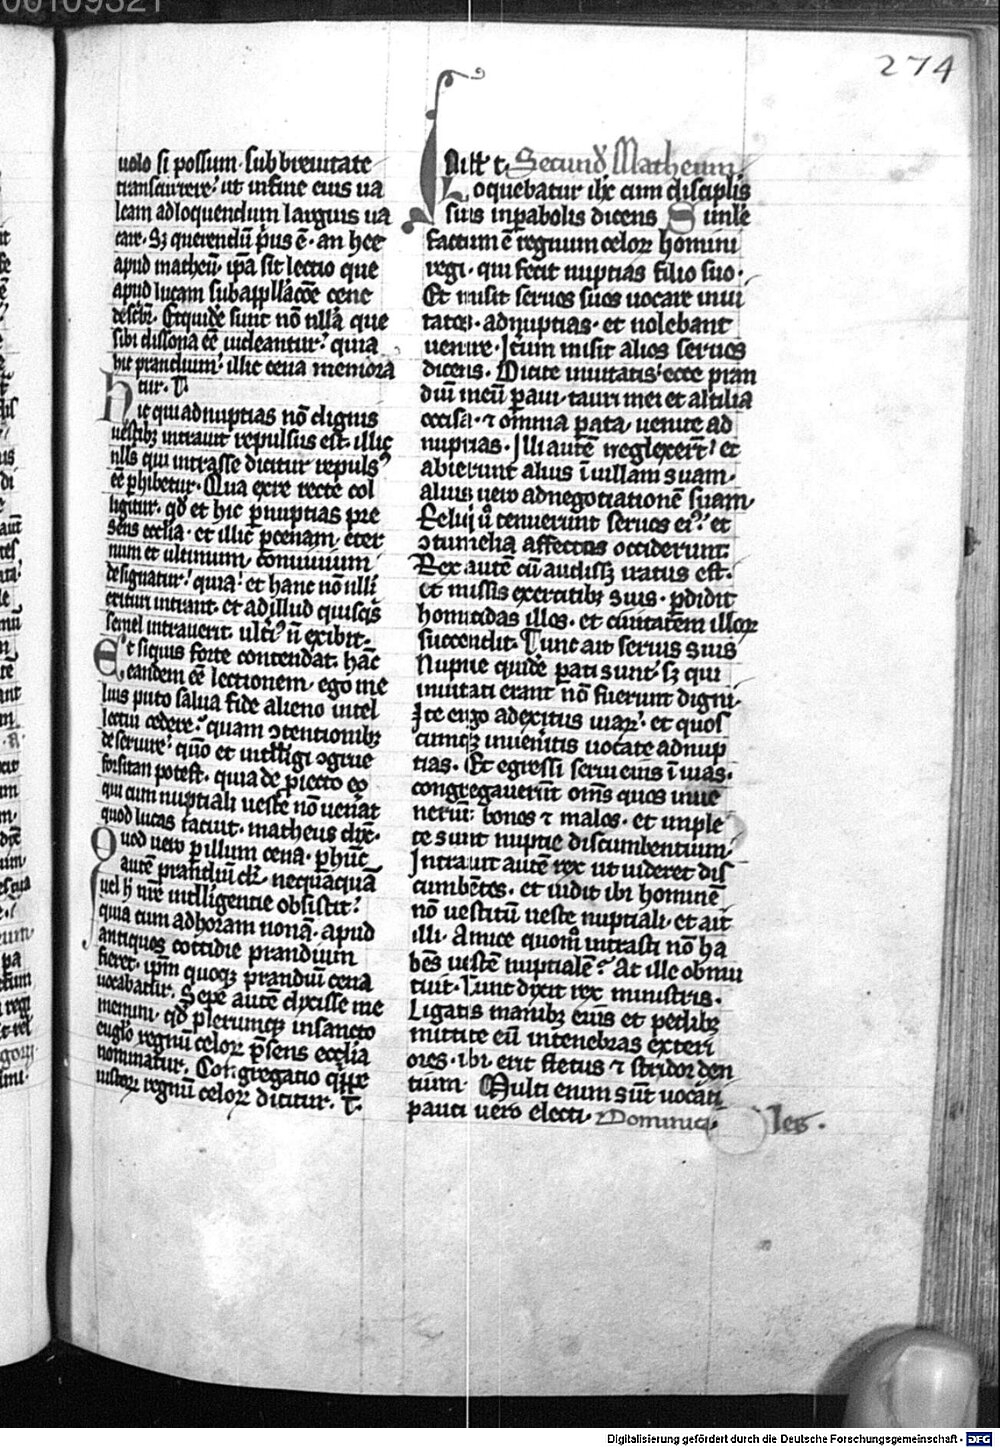 274
uolo si possum · sub breuitate
transcurrere · ut in fine eius ua
leam ad loquendum largius ua
care · Sꝫ querendū p̄us ē · an hec
apud matheū · ip̄a sit lectio que
apud lucam sub appll̄acōe cene
describit̄ · Et quidē sunt nōnll̄a que
sibi dissona eē uideantur · quia
hic prandium · illic cena memora
tur · T̄
Hic qui ad nuptias nō dignis
uestibꝫ intrauit repulsus est · illic
nll̄s qui intrasse dicitur repulsꝰ
eē ꝑhibetur · Qua ex re recte col
ligitur · qd̄ et hic ꝑ nuptias pre
sens eccl̄ia · et illic ꝑ cenam · eter
num et ultimum · conuiuium
designatur · quia · et hanc nōnulli
exituri intrant · et ad illud quisq̄s
semel intrauerit · ultiꝰ n̄ exibit ·
Et siquis forte contendat · hāc
eandem eē lectionem · ego me
lius puto salua fide alieno intel
lectui cedere · quam ɔtentionibꝫ
deseruire · quō et intell̄igi ɔgrue
forsitan potest · quia de ꝓiecto eo
qui cum nuptiali ueste nō uenerat
quod lucas tacuit · matheus dix̄ ·
Quod uero ꝑ illum cena · ꝑ hūc
autē prandiū dr̄ · nequaquā
uel h̄ nr̄e intelligentie obsistit ·
quia cum ad horam nonā · apud
antiquos cottidie prandium
fieret · ipm̄ quoqꝫ prandiū cena
uocabatur · Sepe autē dixisse me
memini · qd̄ plerumqꝫ in sancto
euglo regnū celoꝝ p̄sens eccl̄ia
nominatur · Congregatio qꝰppe
iustoꝝ regnū celoꝝ dicitur · T̄ ·
In ill̄ t̄ · Secund̄ Matheum
Loquebatur ih̄c cum discipl̄is
suis in ꝑabolis dicens · Simile
factum ē regnum celoꝝ homini
regi · qui fecit nuptias filio suo ·
Et misit seruos suos uocare inui
tatos · ad nuptias · et nolebant
uenire · Itm̄ misit alios seruos
dicens · Dicite inuitatis · ecce pran
diū meū ꝑaui · tauri mei et altilia
occisa · ⁊ omnia ꝑata · uenite ad
nuptias · Illi autē neglexer̄t · et
abierunt alius ī uillam suam ·
alius uero ad negotiationē suam ·
Reliqui ū tenuerunt seruos eiꝰ · et
ɔtumelia affectos occiderunt ·
Rex autē cū audissꝫ iratus est ·
et missis exercitibꝫ suis · ꝑdidit
homicidas illos · et ciuitatem illoꝝ
succendit · Tunc ait seruis suis
Nuptie quidē ꝑate sunt · sꝫ qui
inuitati erant nō fuerunt digni ·
Ite ergo ad exitus uiaꝝ · et quos
cumqꝫ inuenitis uocate ad nup
tias · Et egressi serui eius ī uias ·
congregauerūt oms̄ quos inue
nerūt · bonos ⁊ malos · et imple
te sunt nuptie discumbentium ·
Intrauit autē rex ut uideret dis
cumbētes · et uidit ibi hominē
nō uestitū ueste nuptiali · et ait
illi · Amice quom̊ intrasti nō ha
bēs uestē nuptialē? At ille obmu
tuit · Tunc dixit rex ministris ·
Ligatis manibꝫ eius et pedibꝫ
mittite eū in tenebras exteri
ores · ibi erit fletus ⁊ stridor den
tium · Multi enim sūt uocati
pauci uero electi · Dominica
les ·
Digitalisierung gefördert durch die Deutsche Forschungsgemeinschaft - DFG